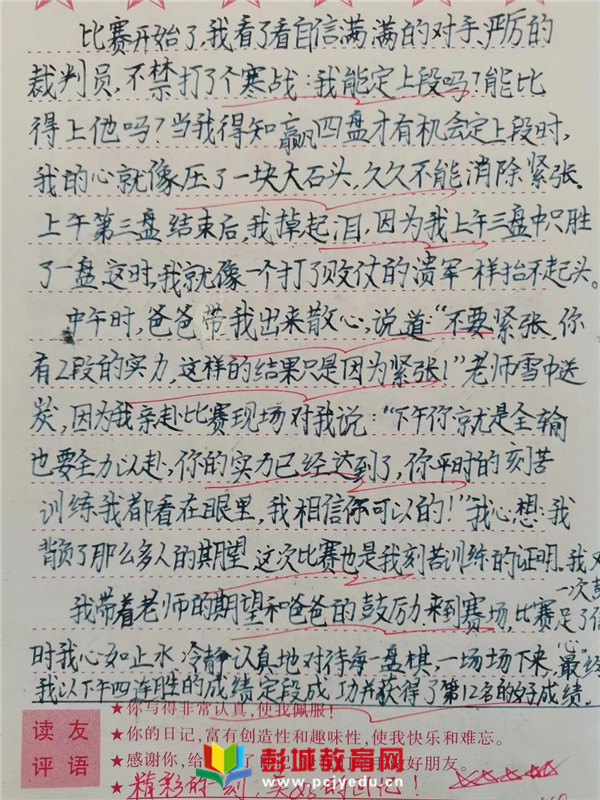 比赛开始了,我看了看自信满满的对手,严厉的
裁判员,不禁打了个寒战:我能定上段吗?能比
得上他吗?当我得知赢四盘才有机会定上段时,
我的心就像压了一块大石头,久久不能消除紧张。
上午第三盘结束后,我掉起泪,因为我上午三盘中只胜
了一盘,这时,我就像一个打了败仗的溃军一样抬不起头。
中午时,爸爸带我出来散心,说道:“不要紧张,你
有2段的实力,这样的结果只是因为紧张!”老师雪中送
炭,因为我亲赴比赛现场对我说:“下午你就是全输
也要全力以赴,你的实力已经达到了,你平时的刻苦
训练我都看在眼里,我相信你可以的!”我心想:我
背负了那么多人的期望,这次比赛也是我刻苦训练的证明,我又
一次鼓
我带着老师的期望和爸爸的鼓励来到赛场,比赛足了信
心。
时我心如止水,冷静认真地对待每一盘棋,一场场下来,最终
我以下午四连胜的成绩定段成功并获得了第12名的好成绩。
读友
评语
★你写得非常认真,使我佩服!
★你的日记,富有创造性和趣味性,使我快乐和难忘。
★感谢你,给 了 好朋友。
★精彩的一刻,
彭城教育网
www.pcjyedu.cn